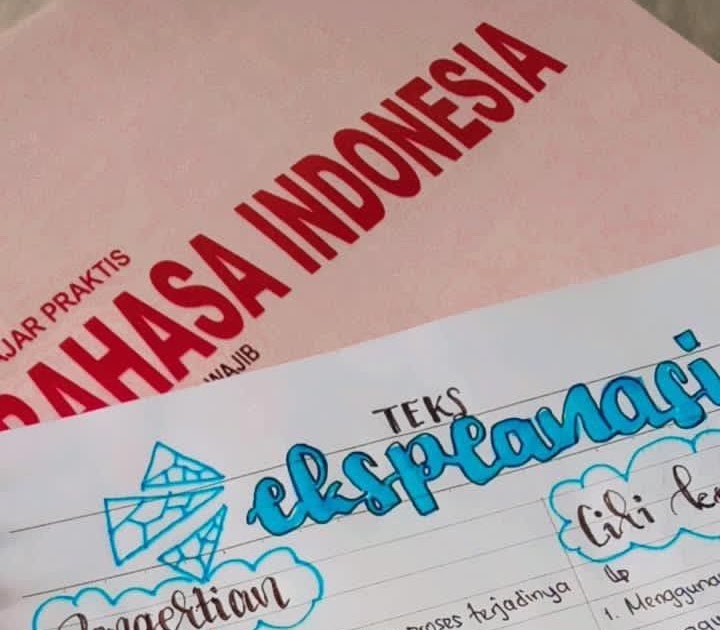 AJAR PRAKTIS
BAHASA INDONESIA
WAJIB
TEKS
eksplanasi
Pengertian
Ciri
proses terjadinya
1. Menggunakan